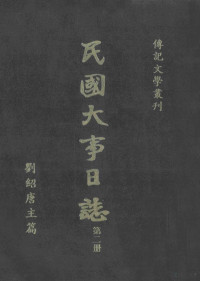 傳記文學叢刊
民國大事日誌
第二册
劉紹唐主編